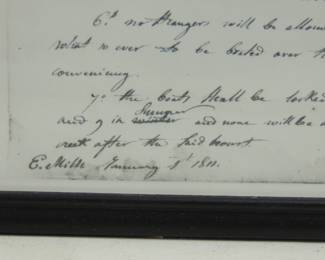 6th no strangers will be allowe
what so ever to be boated over th
conveniency.
7th the boats shall be locked
Summer
and 9 in winter and none will be a
creek after the said hours
E. Mills January 1st 1811.